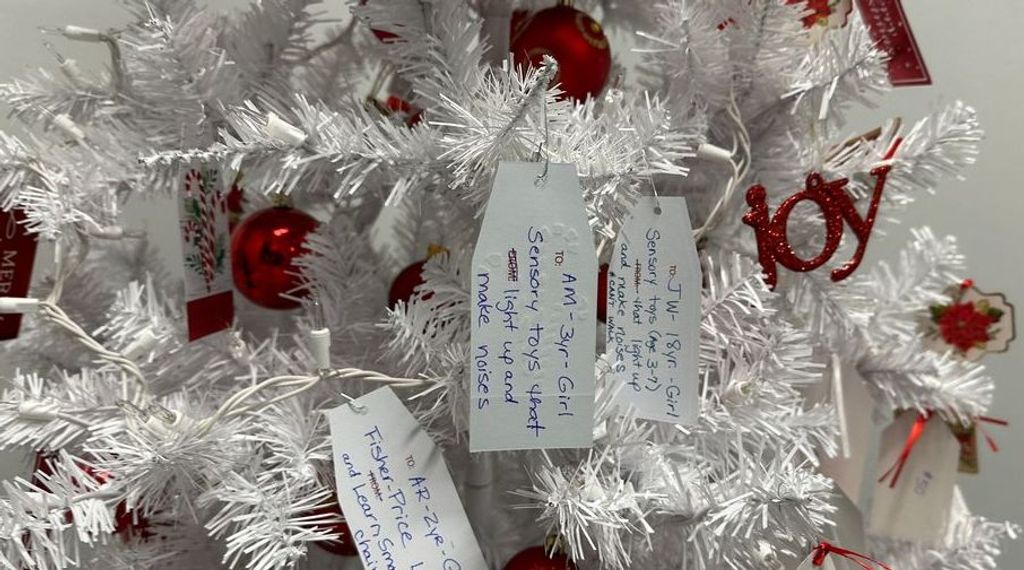 joy
MER
TO: AM - 3yr - Girl
Sensory toys that
FROM: light up and
make noises
TO: JW - 18yr. - Girl
Sensory toys (Age 3-7)
FROM: that light up
and make noises
* CAN'T WALK
TO: AR - 2yr - G
Fisher-Price L
FROM:
and Learn Sma
chai
$50